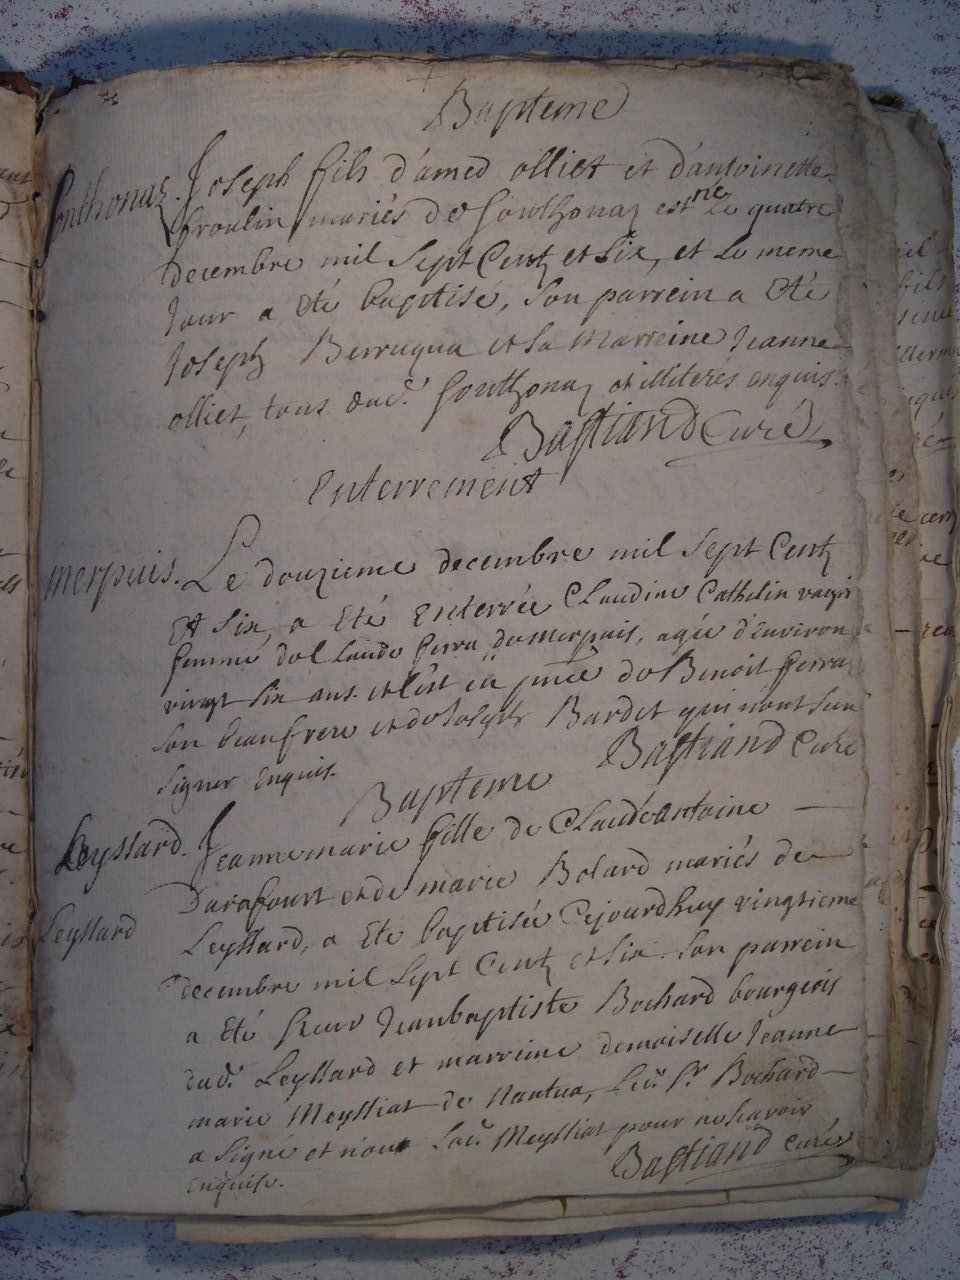 Bapteme
Sonthonaz. Joseph fils d'amed olliet et d'antoinette
froulin mariés de Sonthonaz est ne le quatre
decembre mil Sept Centz et Six, et le meme
Jour a été baptisé, Son parrein a été
Joseph Berruqua et Sa Marreine Jeanne
olliet, tous dud. Sonthonaz et illiterés enquis.
Bastiand Curé
Enterrement
merpuis. Le douzieme decembre mil Sept Centz
Et Six, a été Enterrée Claudine Cathelin
femme de Claude ferra de Merpuis, agée d'environ
vingt Six ans. et C'est en pnce de Benoit ferra
Son beaufrere et de Joseph Bardet qui n'ont Sçu
Signer Enquis. Bastiand Curé
Bapteme
Leyssard. Jeannemarie fille de Claudeantoine
Darafourt et de marie Bolard mariés de
Leyssard Leyssard, a Eté baptisée Cejourdhuy vingtieme
decembre mil Sept Centz et Six. Son parrein
a Eté Sieur Jeanbaptiste Bochard bourgeois
dud. Leyssard et marreine demoiselle Jeanne
marie Meyssiat de Nantua, Led. Sr. Bochard
a Signé et non Lad. Meyssiat pour ne Scavoir
Enquise. Bastiand curé